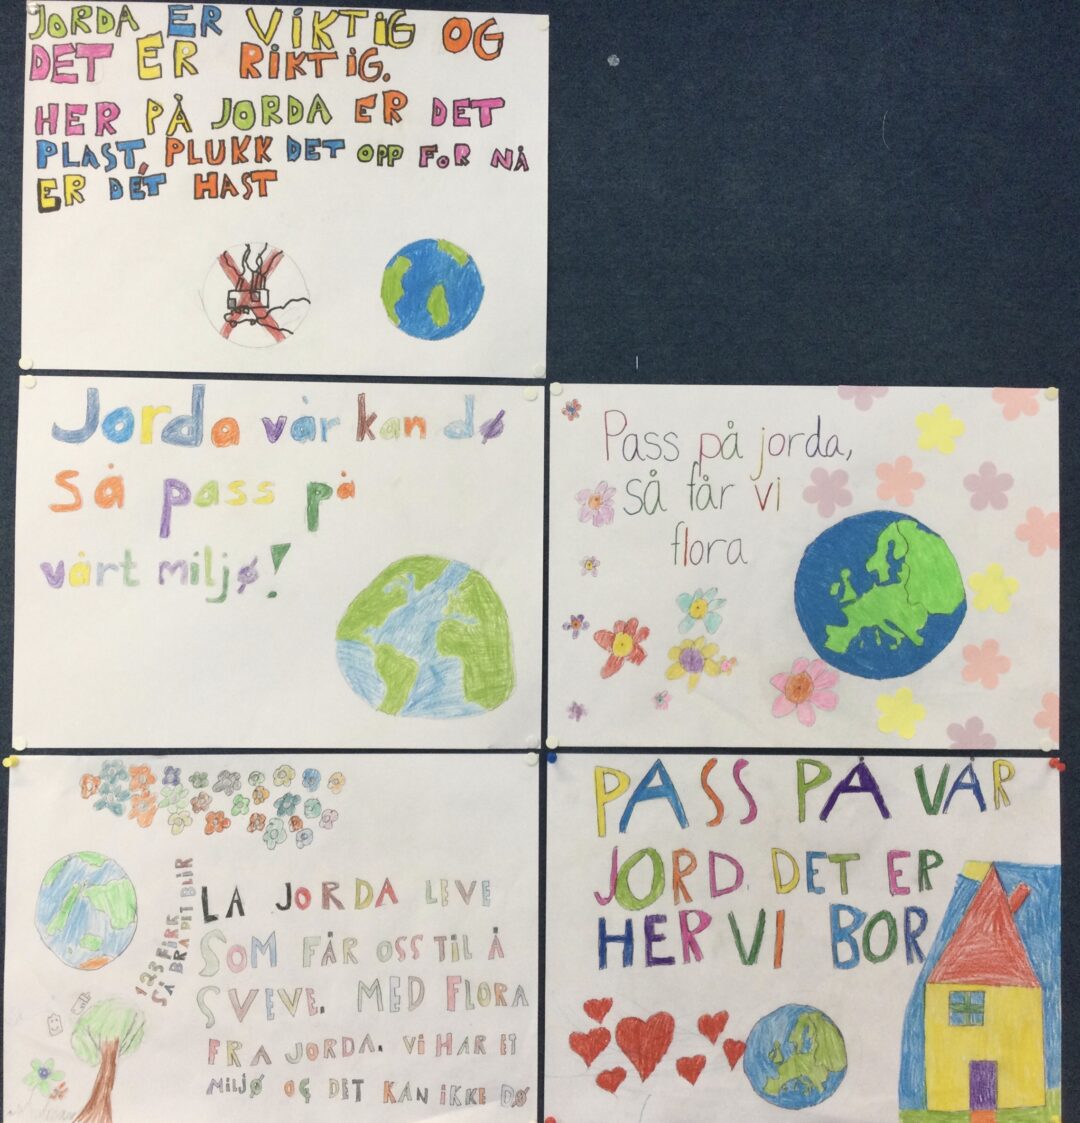 JORDA ER VIKTIG OG
DET ER RIKTIG.
HER PÅ JORDA ER DET
PLAST, PLUKK DET OPP FOR NÅ
ER DÉT HAST
Jorda vår kan dø
så pass på
vårt miljø!
Pass på jorda,
så får vi
flora
123 FIRE
SÅ BRA DIT BLIR
LA JORDA LEVE
SOM FÅR OSS TIL Å
SVEVE. MED FLORA
FRA JORDA. Vi HAR ET
MILJØ OG DET KAN IKKE DØ
PASS PÅ VÅR
JORD. DET ER
HER VI BOR